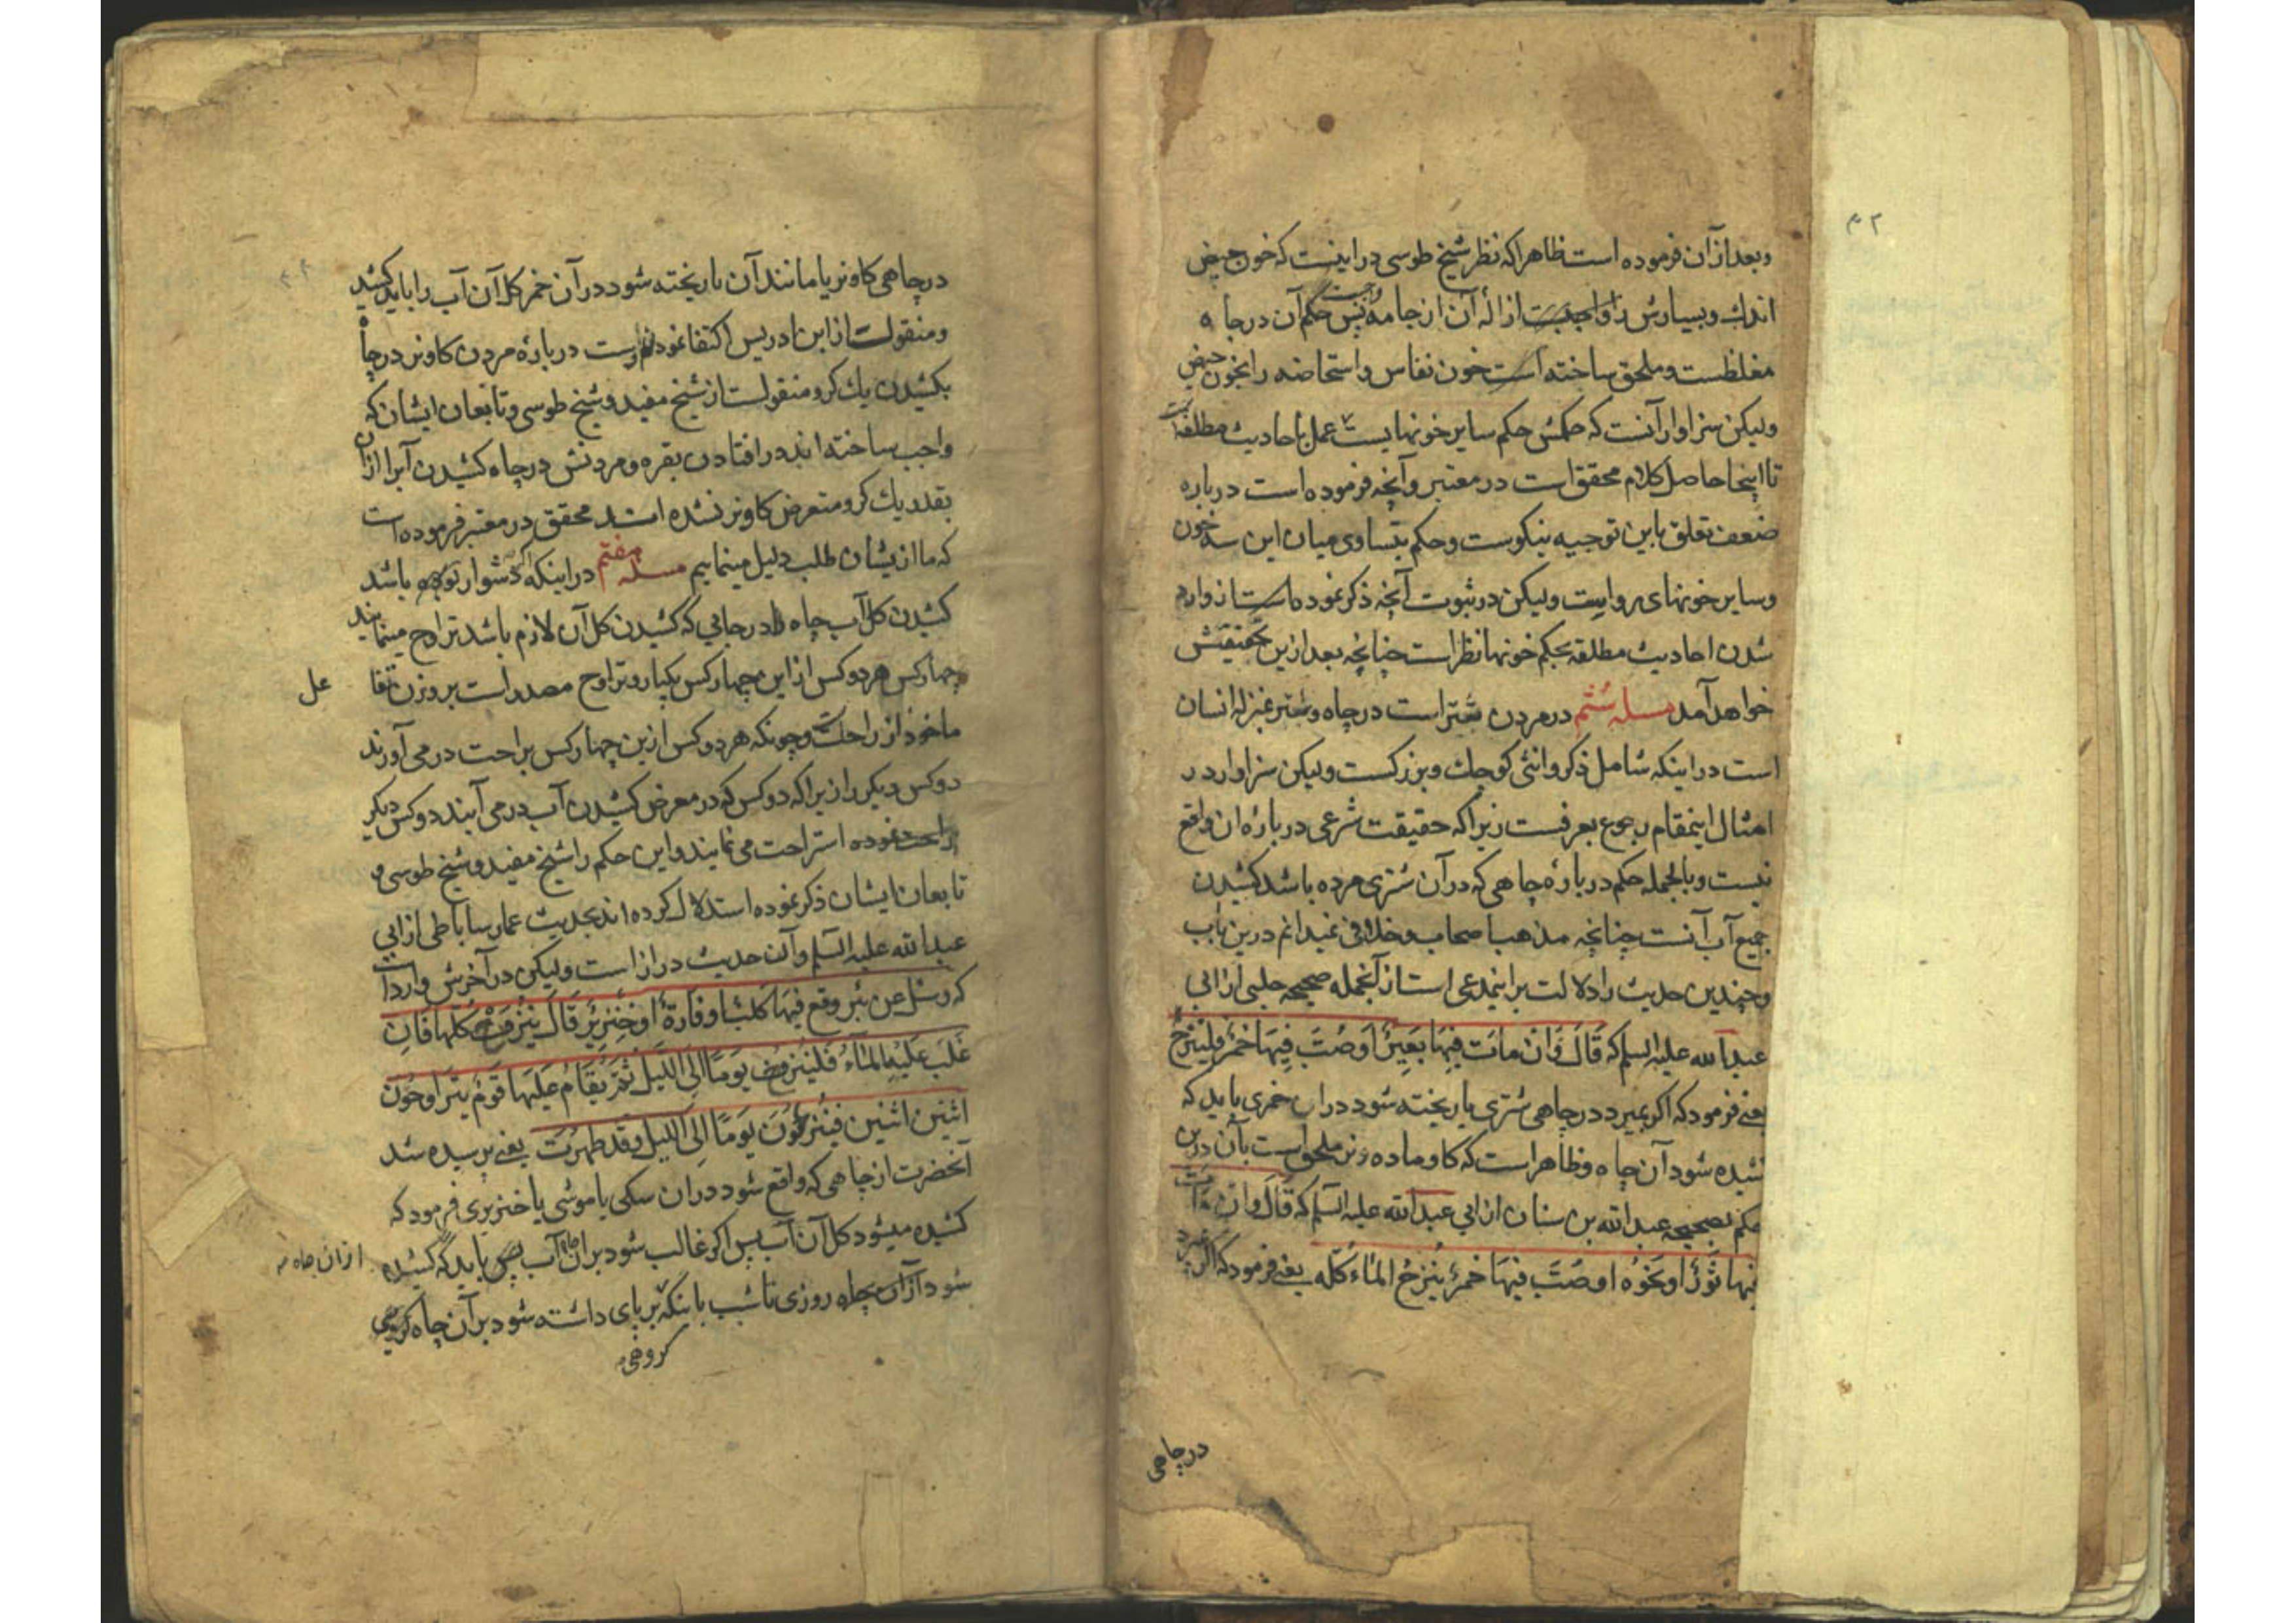 ۴۲
وبعد از آن فرموده است ظاهرا که نظر شیخ طوسی در اینست که خون حیض
اندك وبسیارش را واجبست ازالهٔ آن از جامه پس حکم آن در چاه
مغلظست وملحق ساخته است خون نفاس واستحاضه را بخون حیض
ولیکن سزاوار آنست که حکمش حکم سایر خونهایست عمل باحادیث مطلقه
تا اینجا حاصل کلام محقق است در معتبر وآنچه فرموده است درباره
ضعف تعلق باین توجیه نیکوست وحکم بتساوی میان این سه خون
وسایر خونهای ولیکن در ثبوت آنچه ذکر نموده است از وارد
شدن احادیث مطلقه بحکم خونها نظر است چنانچه بعد ازین تحقیقش
خواهد آمد مسله ششم در مردن شتر است در چاه وشتر بمنزله انسان
است در اینکه شامل ذکر وانثی کوچك وبزرکست ولیکن سزاوار در
امثال اینمقام رجوع بعرفست زیرا که حقیقت شرعی درباره ان واقع
نیست وبالجمله حکم درباره چاهی که در آن شتری مرده باشد کشیدن
جمیع آب آنست چنانچه مذهب اصحاب وخلافی نمیدانم درین باب
وچندین حدیث را دلالت بر اینمدعی است از آنجمله صحیحه حلبی از ابی
عبد الله علیه السلم که قَالَ وَاِنْ مَاتَ فِیهَا بَعِیرٌ اَوْ صُبَّ فِیهَا خَمْرٌ فَلْیُنْزَحْ
یعنی فرمود که اکر بمیرد در چاهی شتری یا ریخته شود در ان خمری باید که
کشیده شود آن چاه وظاهر است که کاو ماده ونر ملحق است بآن درین
حکم بصحیحه عبد الله بن سنان از ابی عبد الله علیه السلم که قَالَ وَاِنْ مَاتَ
فیها ثَوْرٌ اَوْ نَحْوُهُ اَوْ صُبَّ فِیهَا خَمْرٌ یُنْزَحُ المَاءُ کُلُّه یعنی فرمود که اکر بمیرد
در چاهی
در چاهی کاو نر یا مانند آن یا ریخته شود در آن خمر کل آن آب را باید کشید
ومنقولست از ابن ادریس اکتفا نمودن درباره مردن کاو نر در چاه
بکشیدن یك کر ومنقولست از شیخ مفید وشیخ طوسی وتابعان ایشان که
واجب ساخته اند در افتادن بقره ومردنش در چاه کشیدن آب را از آن
بقدر یك کر ومتعرض کاو نر نشده اند محقق در معتبر فرموده است
که ما از یشان طلب دلیل مینماییم مسله هفتم در اینکه اکر دشوار باشد
کشیدن کل آب چاه در جایی که کشیدن کل آن لازم باشد تراوح مینمایند
چهار کس هر دو کس از این چهار کس یکبار وتراوح مصدر است بر وزن تفا
عل
ماخوذ از راحت وچونکه هر دو کس ازین چهار کس براحت در می آورند
دو کس دیکر را زیرا که دو کس که در معرض کشیدن آب در می آیند دو کس دیکر
راحت نموده استراحت می نمایند واین حکم را شیخ مفید وشیخ طوسی و
تابعان ایشان ذکر نموده استدلال کرده اند بحدیث عمار ساباطی از ابی
عبد الله علیه السلم وآن حدیث دراز است ولیکن در آخرش وارد است
که وسئل عن بئر وقع فیهَا کَلْبٌ او فَارَةٌ اَوْ خِنْزِیرٌ قَالَ یُنْزَحُ کُلُّهَا فَاِن
غَلَبَ عَلَیْهِ المَاءُ فَلْیُنْزَحْ یَوْمًا اِلَی اللَّیْلِ ثُمَّ یُقَامُ عَلَیْهَا قَوْمٌ یَتَرَاوَحُونَ
اثْنَینِ اثْنَینِ فَیَنْزِحُونَ یَوْمًا اِلَی اللَّیلِ وَقَد طَهُرَتْ یعنی پرسیده شد
آنحضرت از چاهی که واقع شود در ان سکی یا موشی یا خنزیری فرمود که
کشیده میشود کل آن آب پس اکر غالب شود بر ان آب پس باید که کشیده
از ان چاه
شود از آن چاه روزی تا شب با اینکه بر پای داشته شود بر آن چاه
کروهی